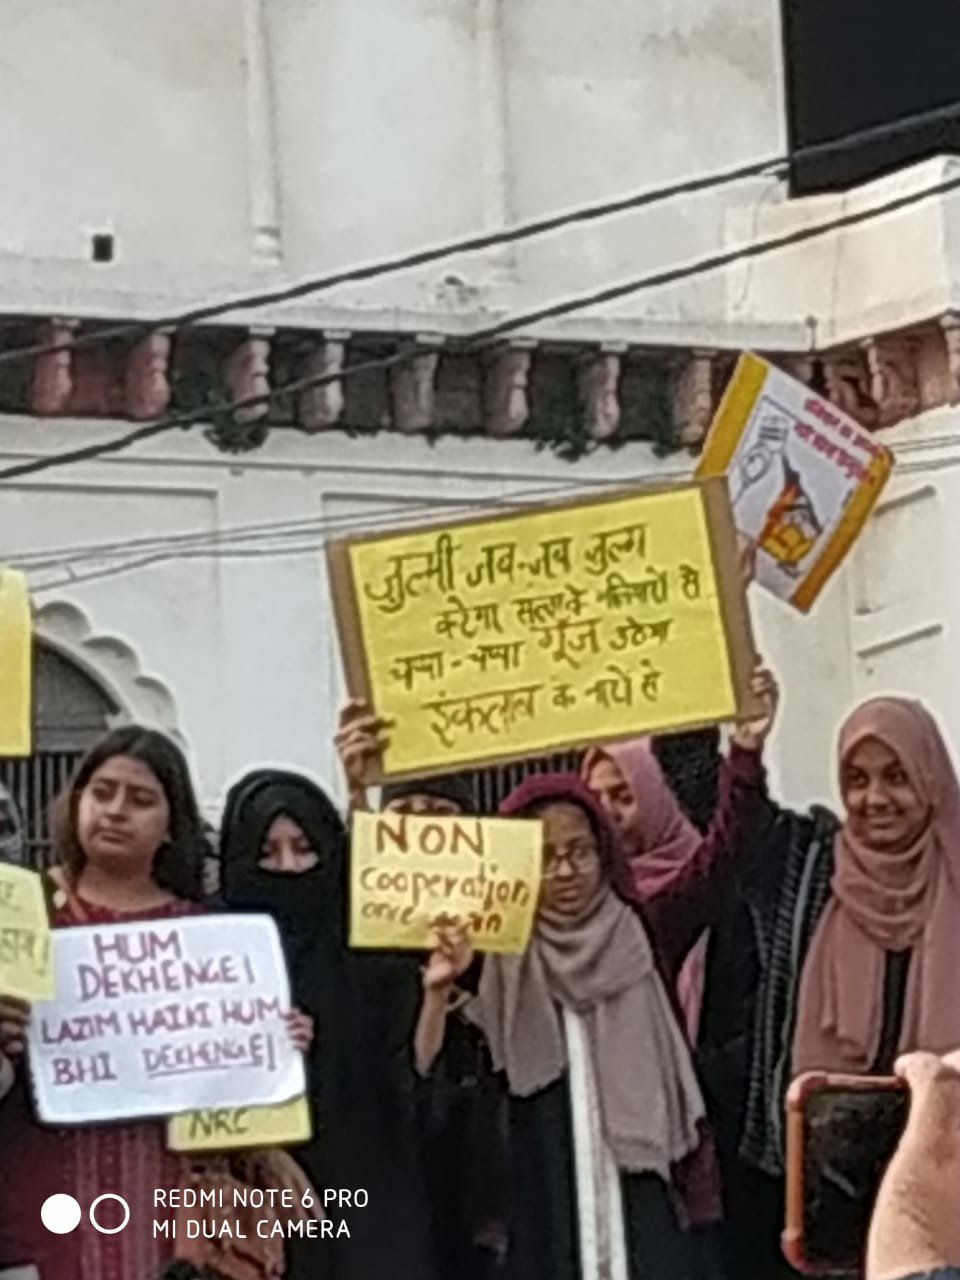 जुल्मी जब-जब जुल्म
करेगा सत्ता के गलियारों से
चप्पा-चप्पा गूँज उठेगा
इंकलाब के नारों से
NON
cooperation
once again
HUM
DEKHENGE!
LAZIM HAI KI HUM
BHI DEKHENGE!
NRC
REDMI NOTE 6 PRO
MI DUAL CAMERA